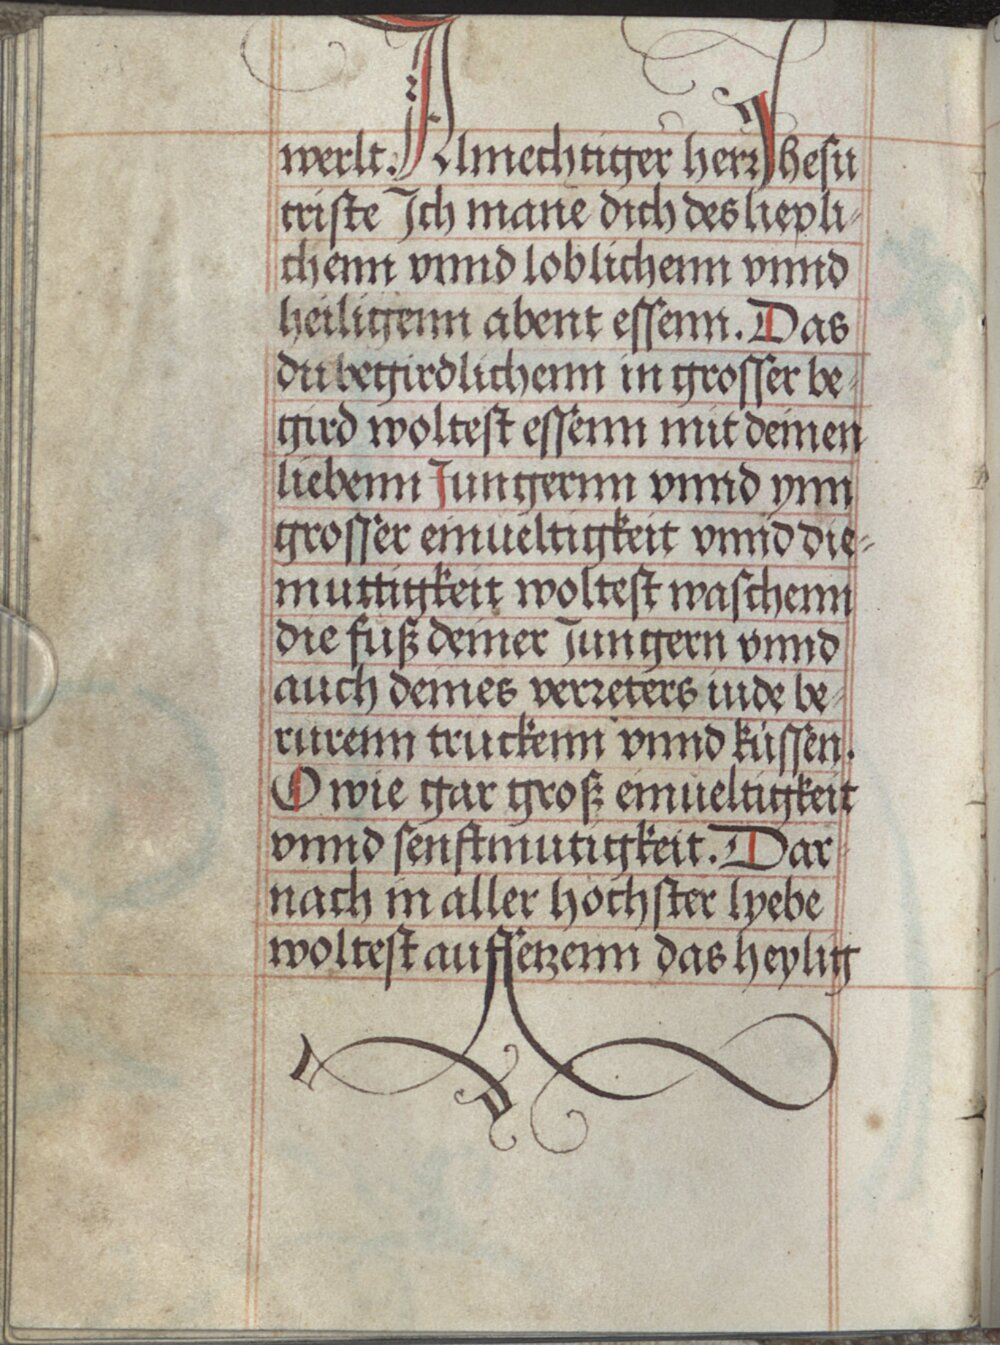 werlt. Almechtiger herr Jhesu
criste Ich mane dich des liepli-
chenn vnnd loblichenn vnnd
heiligenn abent essenn. Das
du begirdlichenn in grosser be-
gird woltest essenn mit deinen
liebenn Jungernn vnnd ynn
grosser einueltigkeit vnnd die-
muttigkeit woltest waschenn
die fuß deiner Jungern vnnd
auch deines verreters iude be-
rurenn truckenn vnnd küssen.
O wie gar groß einueltigkeit
vnnd senftmutigkeit. Dar
nach in aller hochster lyebe
woltest auffsetzenn das heylig